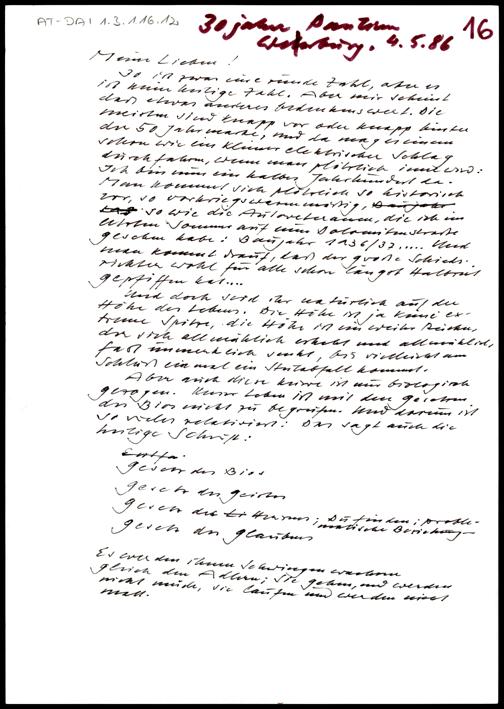 AT-DAI 1.3.1.16.12
30 jahre
16
burg, 4.5.86
Meine Lieben!
30 ist zwar eine runde Zahl, aber es
ist keine heilige Zahl. Aber mir scheint
daß etwas anderes bedenkenswert. Die
meisten sind knapp vor oder knapp hinter
der 50 Jahrmarke, und da mag es einem
schon wie ein kleiner elektrischer Schlag
durchfahren, wenn man plötzlich inne wird:
Ich bin nun ein halbes Jahrhundert da.
Man kommt sich plötzlich so historisch
vor, so vorkriegsmäßig, Baujahr
so wie die Autoveteranen, die ich im
letzten Sommer auf einer Dolomitenstraße
gesehen habe: Baujahr 1936/37..... Und
man kommt drauf, daß der große Schieds-
richter wohl für alle schon längst Halbzeit
gepfiffen hat....
Und doch seid ihr natürlich auf der
Höhe des Lebens. Die Höhe ist ja keine ex-
treme Spitze, die Höhe ist ein weiter Rücken,
der sich allmählich erhebt und allmählich,
fast unmerklich senkt, bis vielleicht am
Schluß einmal ein Steilabfall kommt.
Aber auch diese Kurve ist nur biologisch
gezogen. Unser Leben ist mit den Gesetzen
des Bios nicht zu begreifen. Und darum ist
so vieles relativiert: Das sagt auch die
heilige Schrift:
Gesetz des Bios
Gesetz des Geistes
Gesetz des Herzens; Du finden; proble-
matische Beziehung
Gesetz des Glaubens
Es werden ihnen Schwingen wachsen
gleich den Adlern; sie gehen, und werden
nicht müde, sie laufen und werden nicht
matt.